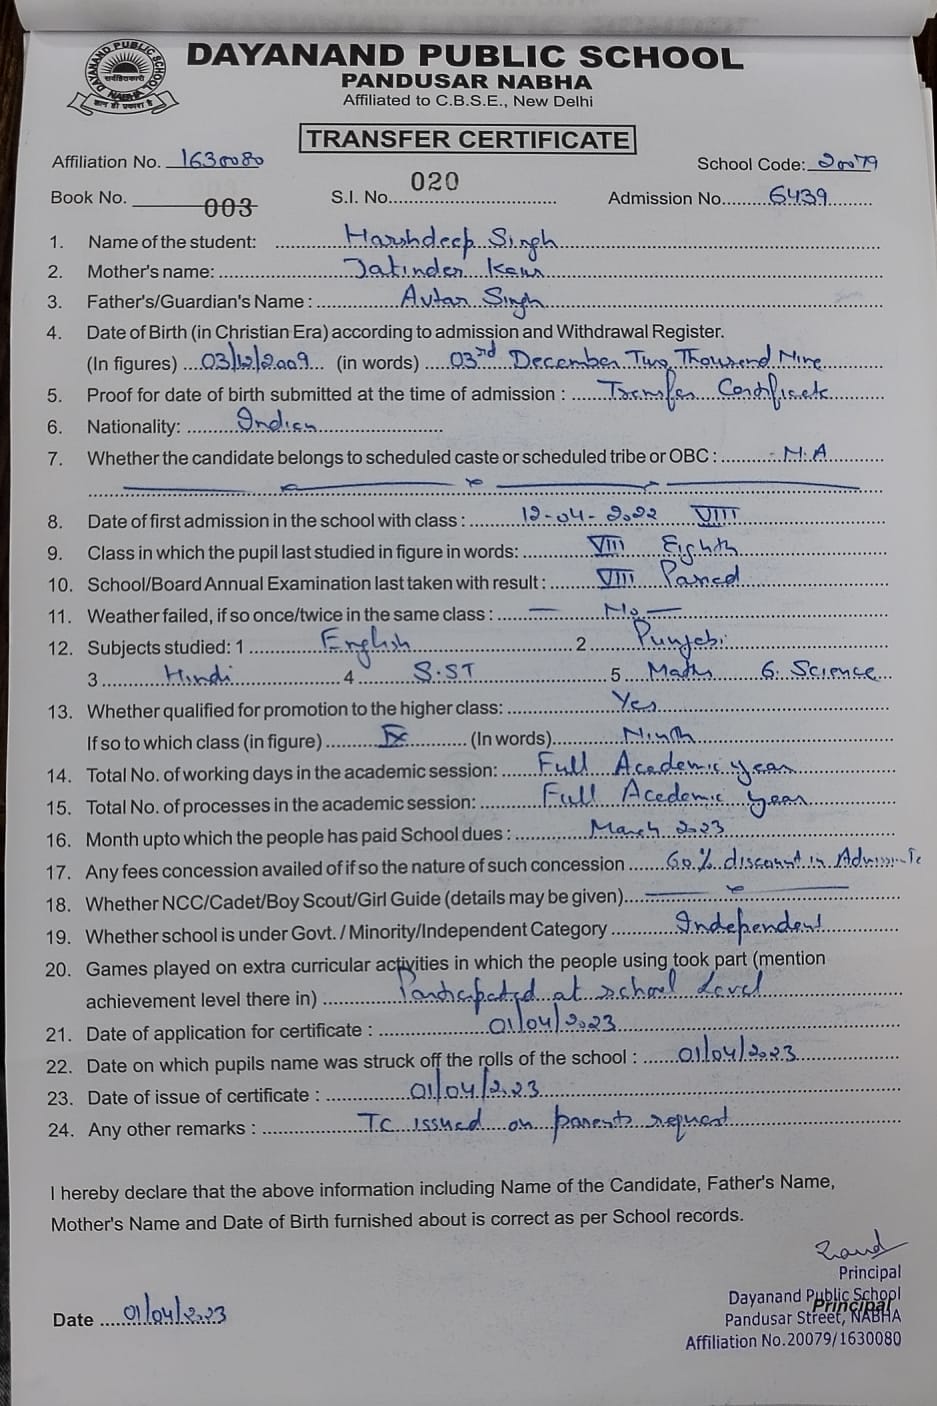 DAYANAND PUBLIC SCHOOL
PANDUSAR NABHA
Affiliated to C.B.S.E., New Delhi
DAYANAND PUBLIC SCHOOL
NABHA
TRANSFER CERTIFICATE
Affiliation No. 1630080 School Code: 20079
Book No. 003 S.I. No. 020 Admission No. 6439
1. Name of the student: Harshdeep Singh
2. Mother's name: Jatinder Kaur
3. Father's/Guardian's Name : Avtar Singh
4. Date of Birth (in Christian Era) according to admission and Withdrawal Register.
(In figures) 03/12/2009 (in words) 03rd December Two Thousend Nine
5. Proof for date of birth submitted at the time of admission : Transfer Certificate
6. Nationality: Indian
7. Whether the candidate belongs to scheduled caste or scheduled tribe or OBC : N.A
8. Date of first admission in the school with class : 12-04-2022 VIII
9. Class in which the pupil last studied in figure in words: VIII Eighth
10. School/Board Annual Examination last taken with result : VIII Passed
11. Weather failed, if so once/twice in the same class : — No —
12. Subjects studied: 1 English 2 Punjabi
3 Hindi 4 S.ST 5 Maths 6. Science
13. Whether qualified for promotion to the higher class: Yes
If so to which class (in figure) IX (In words) Ninth
14. Total No. of working days in the academic session: Full Academic year
15. Total No. of processes in the academic session: Full Acedemic year
16. Month upto which the people has paid School dues : March 2023
17. Any fees concession availed of if so the nature of such concession 60% discount in
18. Whether NCC/Cadet/Boy Scout/Girl Guide (details may be given)
19. Whether school is under Govt. / Minority/Independent Category Independent
20. Games played on extra curricular activities in which the people using took part (mention
achievement level there in) Participated at school Level
21. Date of application for certificate : 01/04/2023
22. Date on which pupils name was struck off the rolls of the school : 01/04/2023
23. Date of issue of certificate : 01/04/2023
24. Any other remarks : TC issued on parents request
I hereby declare that the above information including Name of the Candidate, Father's Name,
Mother's Name and Date of Birth furnished about is correct as per School records.
Principal
Dayanand Public School
Principal
Date 01/04/2023 Pandusar Street, NABHA
Affiliation No.20079/1630080